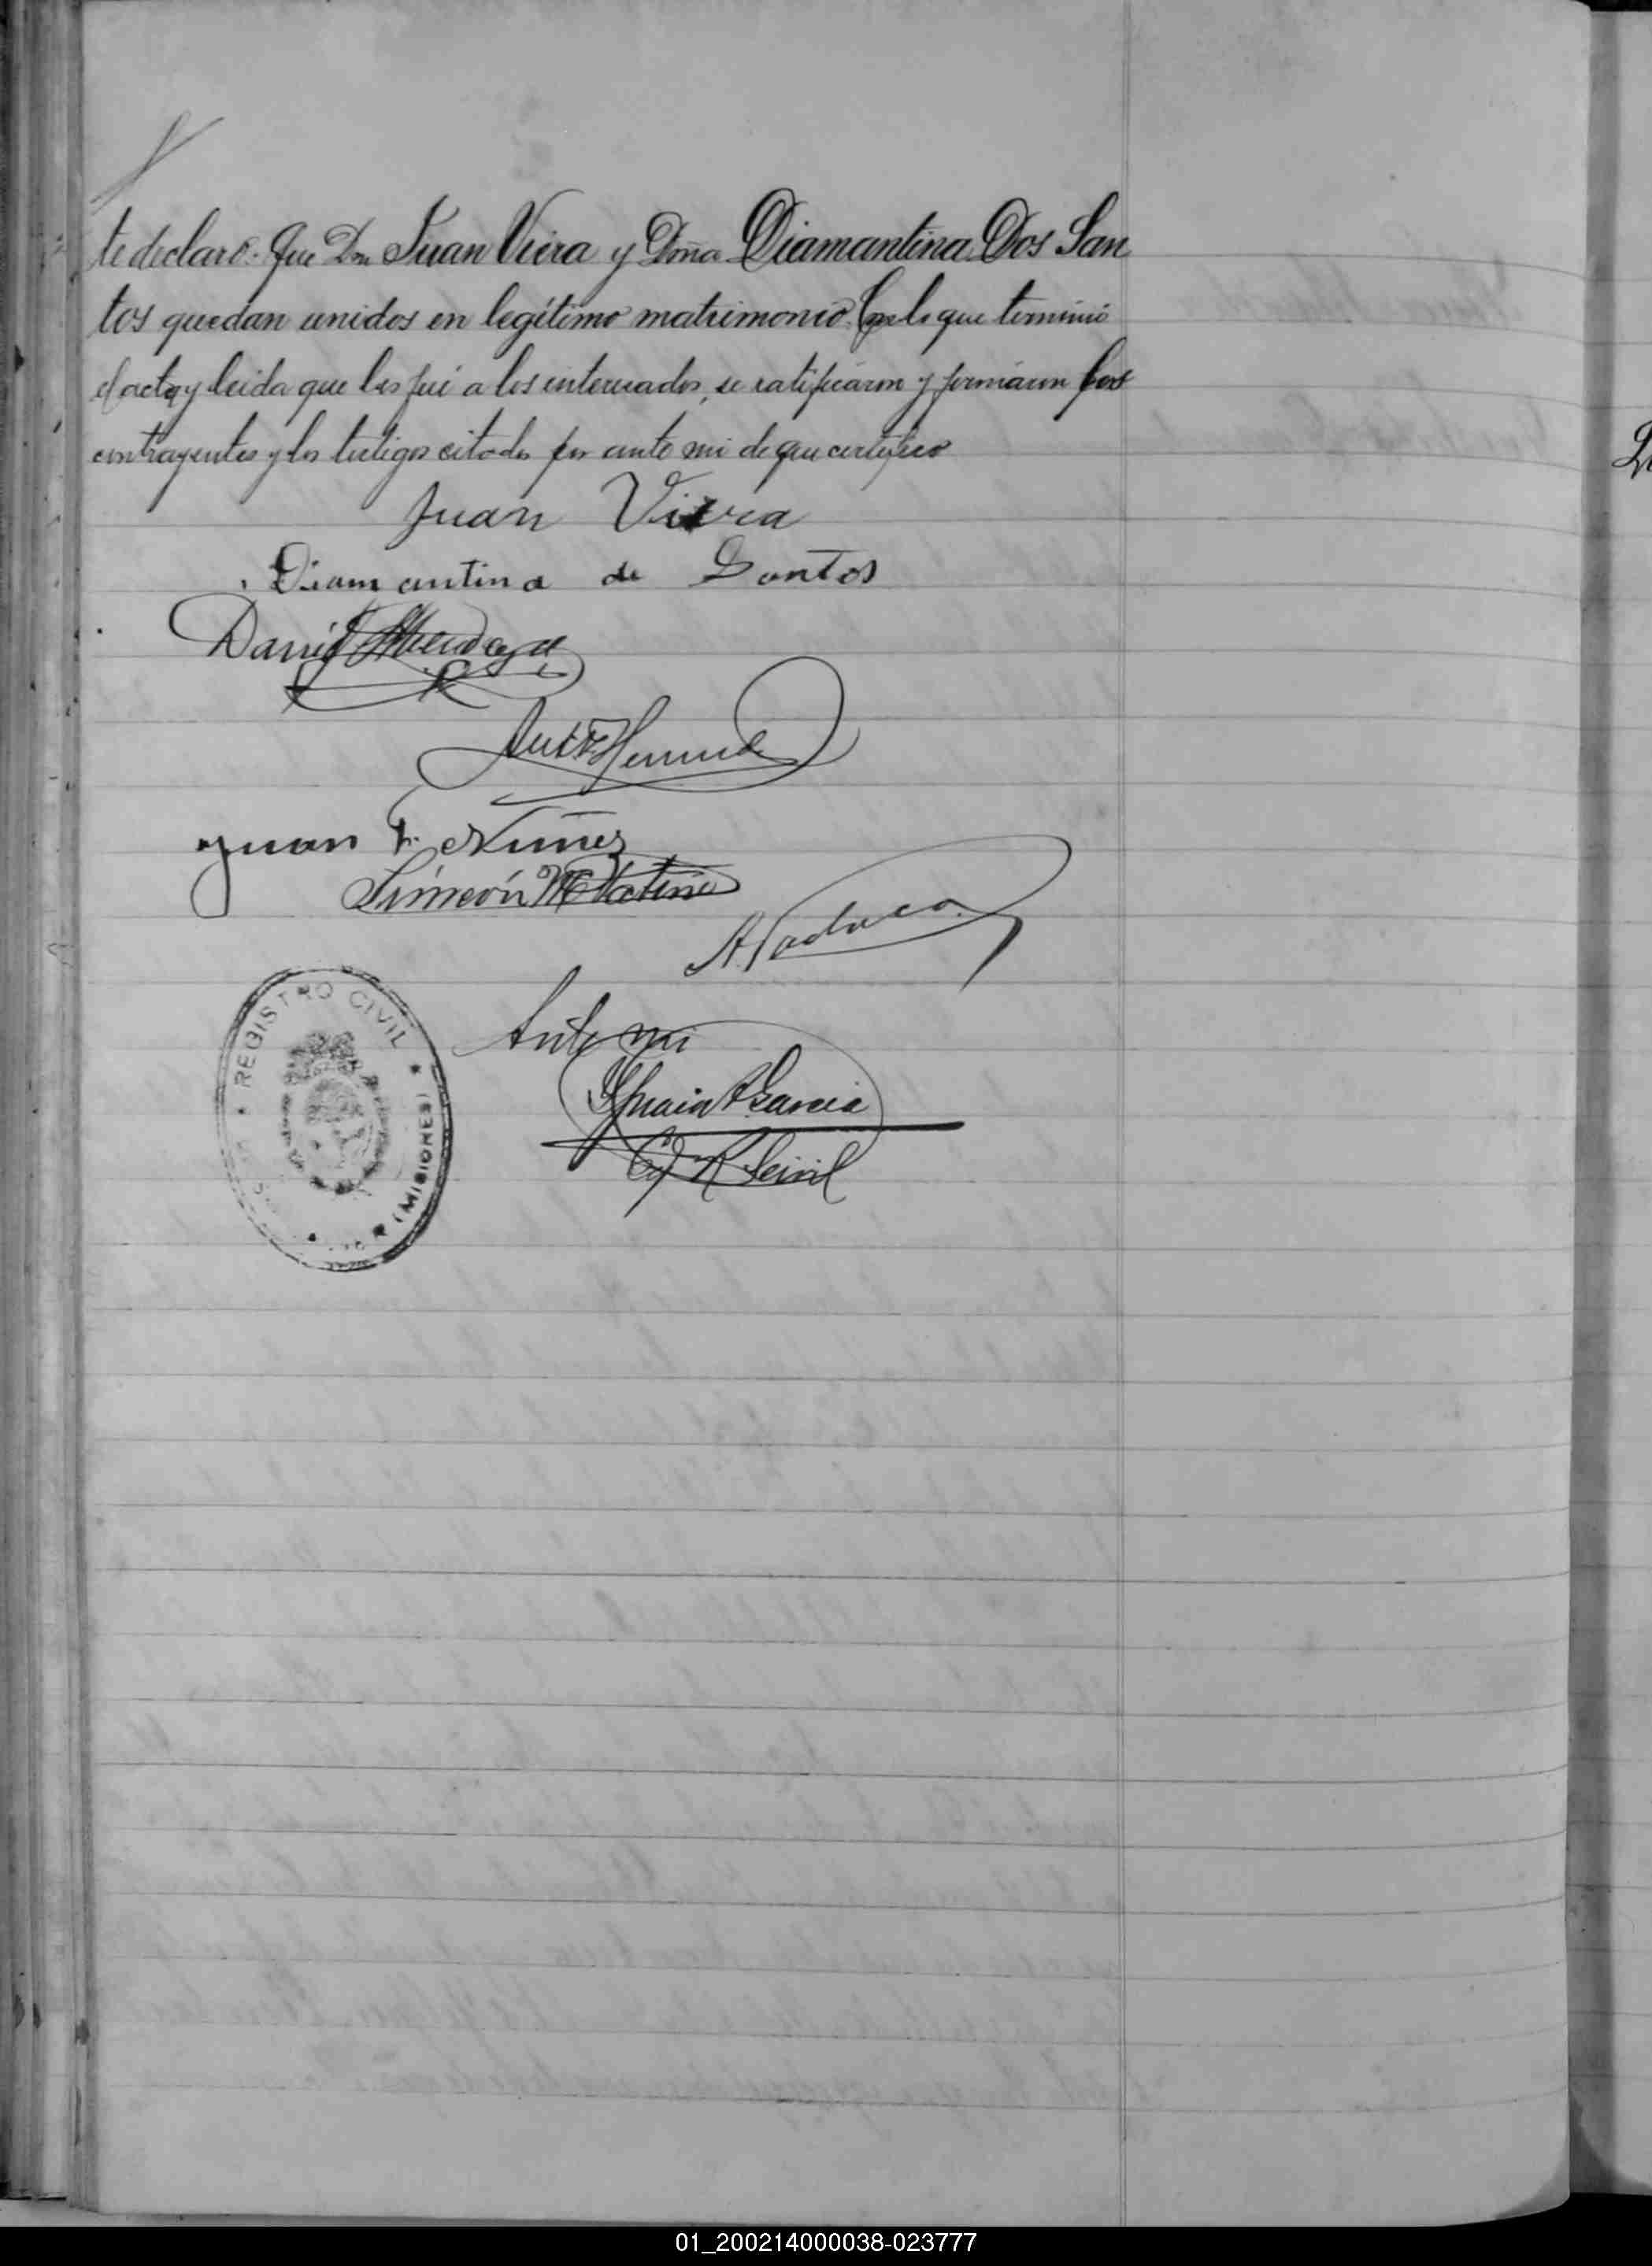 te declaro: Que Don Juan Viera y Doña Diamantina Dos San
tos quedan unidos en legítimo matrimonio. Con lo que terminó
el acto y leida que les fué a los interesados, se ratificaron y firmaron los
contrayentes y los testigos citados por ante mi de que certifico
Juan Viera
Diamantina de Santos
Daniel Mendoza
Juan F. Nuñez
Simeón
Ante mi
A Garcia
R. Civil
REGISTRO CIVIL
(MISIONES)
01_200214000038-023777